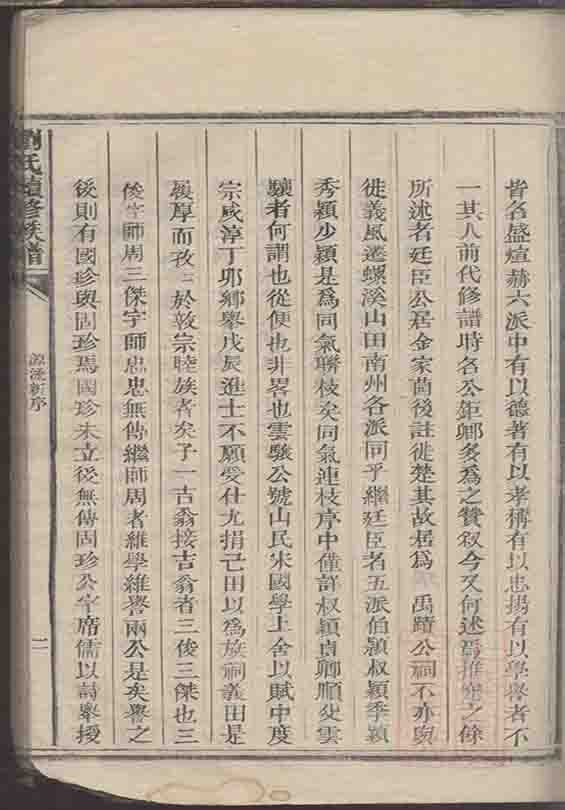 皆名盛煊赫六派中有以德著有以孝稱有以忠揚有以學舉者不
一其人前代修譜時各公鉅卿多為之贊叙今又何述焉推寀之餘
所述者廷臣公居金家
後註徙楚其故居為 禹蹟公祠不亦與
徙義風遷螺溪山田南州各派同乎繼廷臣者五派伯穎叔穎季穎
秀穎少穎是為同氣聯枝矣同氣連枝序中僅詳叔穎貞卿順
雲
驤者何謂也從便也非畧也雲駿公號山民宋國學上舍以賦中度
宗咸淳丁卯鄉舉戊辰進士不願受仕尤捐己田以為族祠義田是
複厚而孜〻於敦宗睦族者矣子一古翁接吉翁者三俊三傑也三
俊字師周三傑字師忠忠無傳繼師周者維學維譽兩公是矣譽之
後則有國珍與固珍焉國珍未立後無傳固珍公字席儒以詩舉授
劉氏續修族譜
源溪新序
二